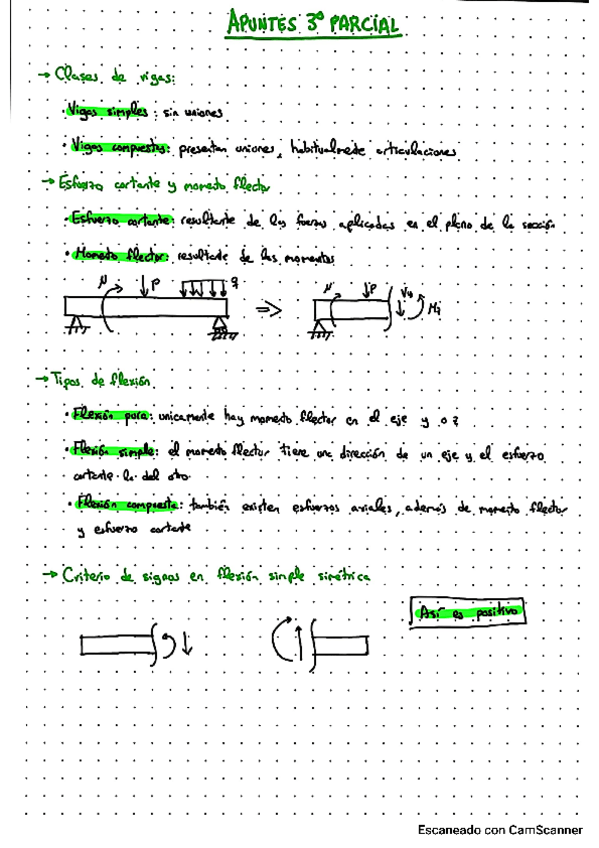 APUNTES 3º PARCIAL
→ Clases de vigas:
· Vigas simples: sin uniones
· Vigas compuestas: presentan uniones, habitualmente articulaciones
→ Esfuerzo cortante y momento flector
· Esfuerzo cortante: resultante de las fuerzas aplicadas en el plano de la sección
· Momento flector: resultante de los momentos
M P q ⇒ M P Vy Mz
→ Tipos de flexión
· Flexión pura: unicamente hay momento flector en el eje y o z
· Flexión simple: el momento flector tiene una dirección de un eje y el esfuerzo
cortante la del otro
· Flexión compuesta: también existen esfuerzos axiales, además de momento flector
y esfuerzo cortante
→ Criterio de signos en flexión simple simétrica
Así es positivo
Escaneado con CamScanner